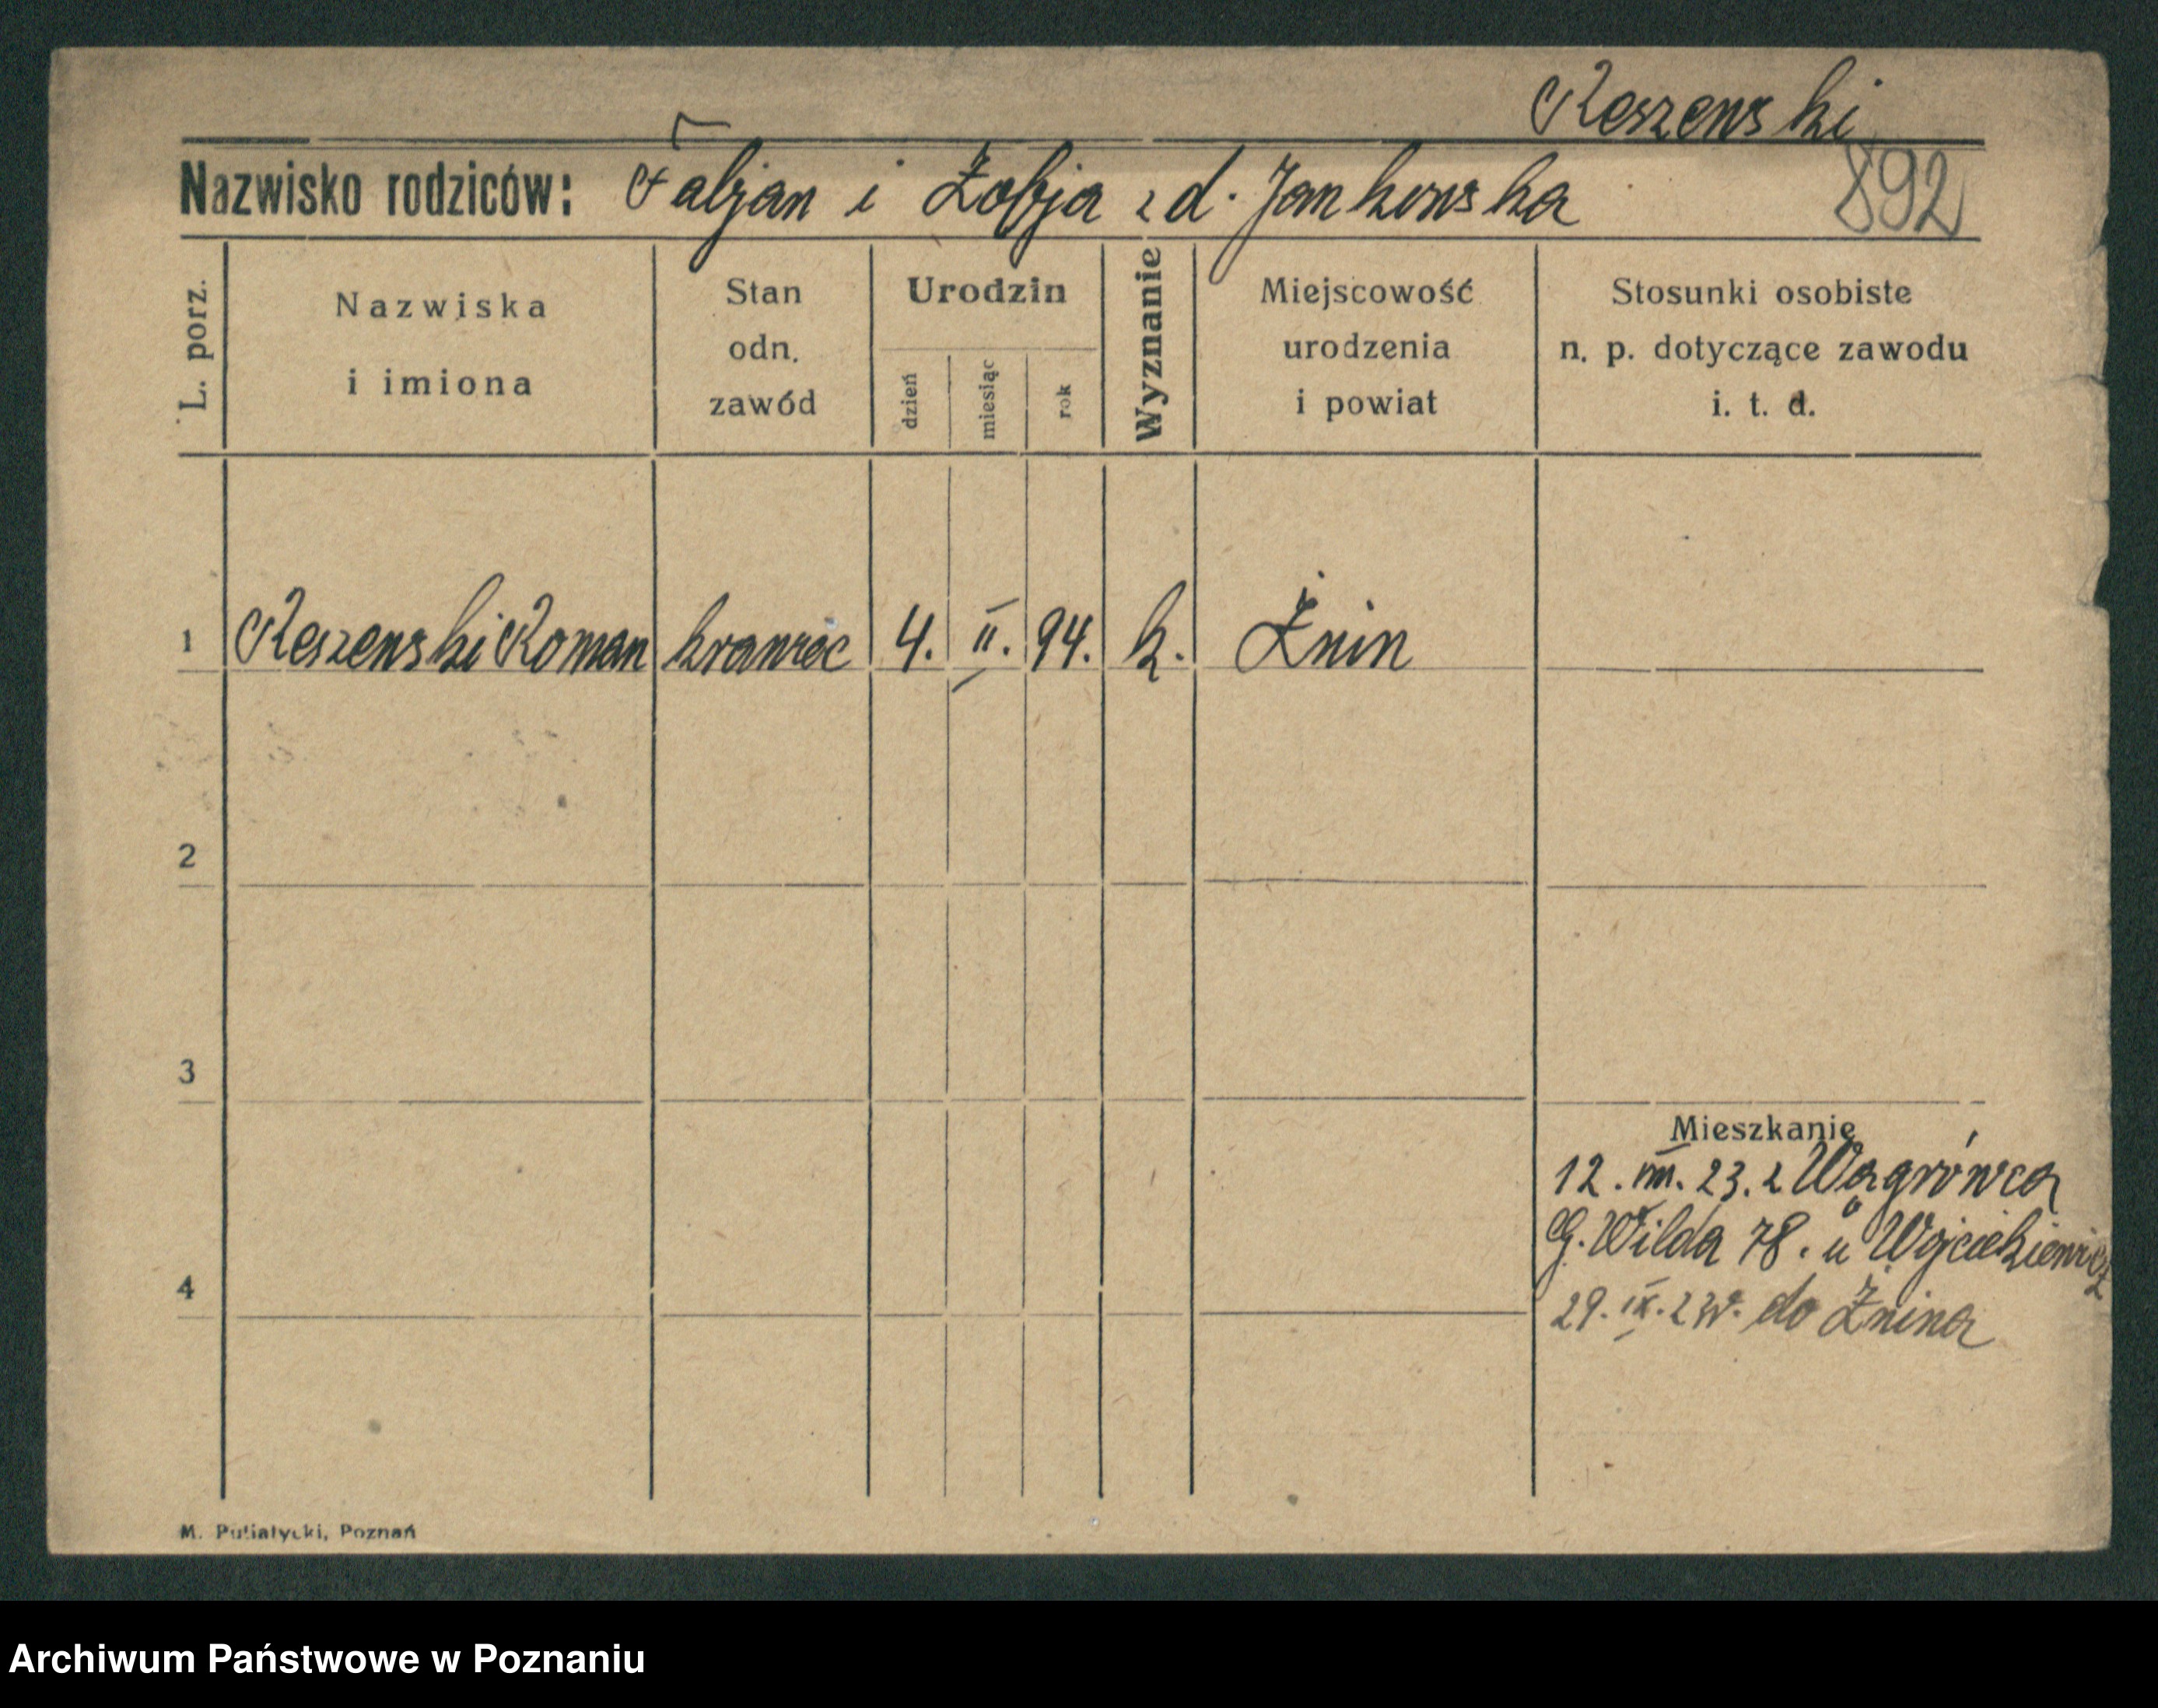 Reszewski
Nazwisko rodziców: Fabjan i Zofja z d. Jankowska
892
L. porz.
Nazwiska
i imiona
Stan
odn.
zawód
Urodzin
dzień
miesiąc
rok
Wyznanie
Miejscowość
urodzenia
i powiat
Stosunki osobiste
n. p. dotyczące zawodu
i. t. d.
1 Reszewski Roman krawiec 4. II. 94. k. Żnin
2
3
Mieszkanie
12. VIII. 23. z Wągrówca
G. Wilda 78. u Wojciekiewicz
4
29. IX. 23r. do Żnina
M. Putiatycki, Poznań
Archiwum Państwowe w Poznaniu